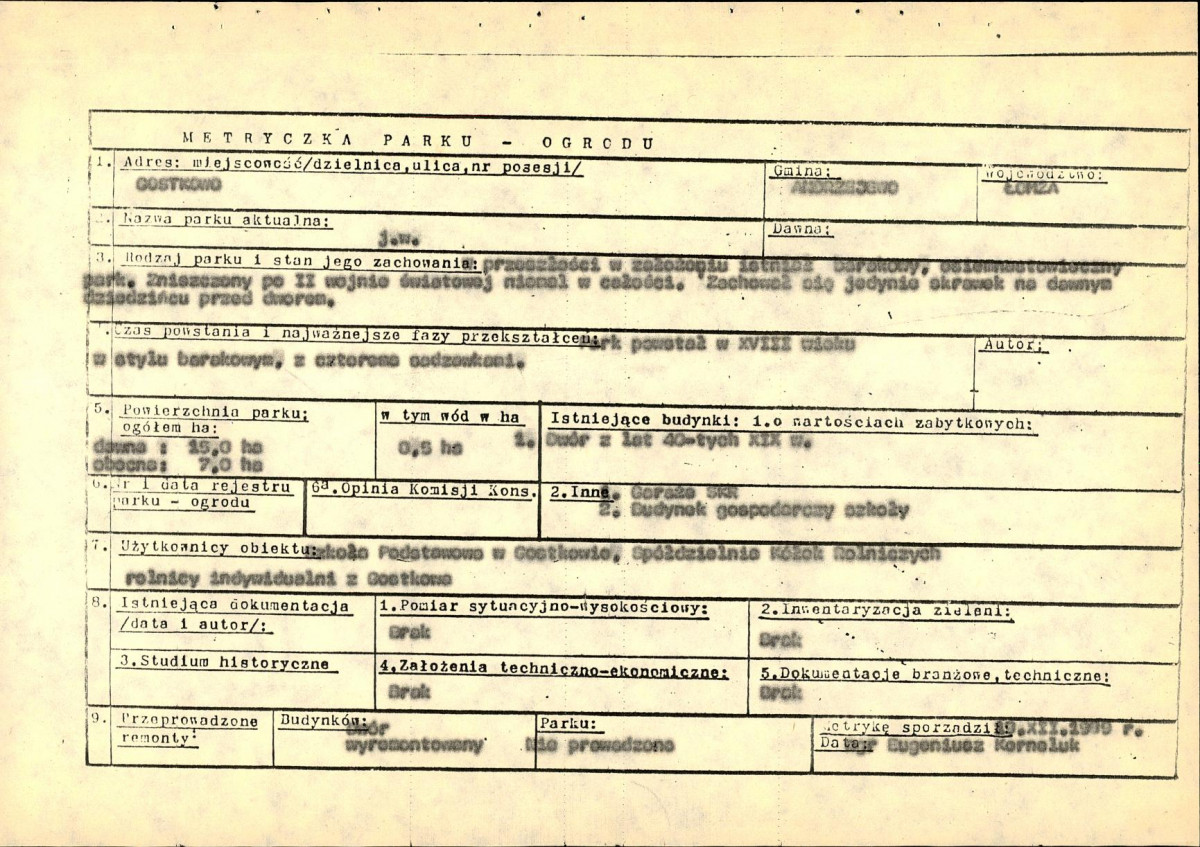 METRYCZKA PARKU - OGRODU
1. Adres: miejscowość/dzielnica,ulica,nr posesji/ Gmina: Województwo:
GOSTKOWO ANDRZEJEWO ŁOMŻA
2. Nazwa parku aktualna: Dawna:
j.w.
3. Rodzaj parku i stan jego zachowania: przeszłości w założeniu istniał barokowy, osiemnastowieczny
park. Zniszczony po II wojnie światowej niemal w całości. Zachował się jedynie skrawek na dawnym
dziedzińcu przed dworem.
Czas powstania i najważniejsze fazy przekształceń: Park powstał w XVIII wieku Autor:
w stylu barokowym, z czterema sadzawkami.
5. Powierzchnia parku: w tym wód w ha Istniejące budynki: 1.o wartościach zabytkowych:
ogółem ha: 1. Dwór z lat 40-tych XIX w.
dawna : 15,0 ha 0,5 ha
obecna: 7,0 ha
6. Nr i data rejestru 6a. Opinia Komisji Kons. 2. Inne 1. Garaże SKR
parku - ogrodu 2. Budynek gospodarczy szkoły
7. Użytkownicy obiektu: Szkoła Podstawowa w Gostkowie, Spółdzielnia Kółek Rolniczych
rolnicy indywidualni z Gostkowa
8. Istniejąca dokumentacja 1.Pomiar sytuacyjno-wysokościowy: 2.Inwentaryzacja zieleni:
/data i autor/: Brak Brak
3.Studium historyczne 4.Założenia techniczno-ekonomiczne: 5.Dokumentacje branżowe,techniczne:
Brak Brak
9. Przeprowadzone Budynków: Parku: Metrykę sporządził: XII.1979 r.
remonty: Dwór wyremontowany Nie prowadzono Data: mgr Eugeniusz Korneluk